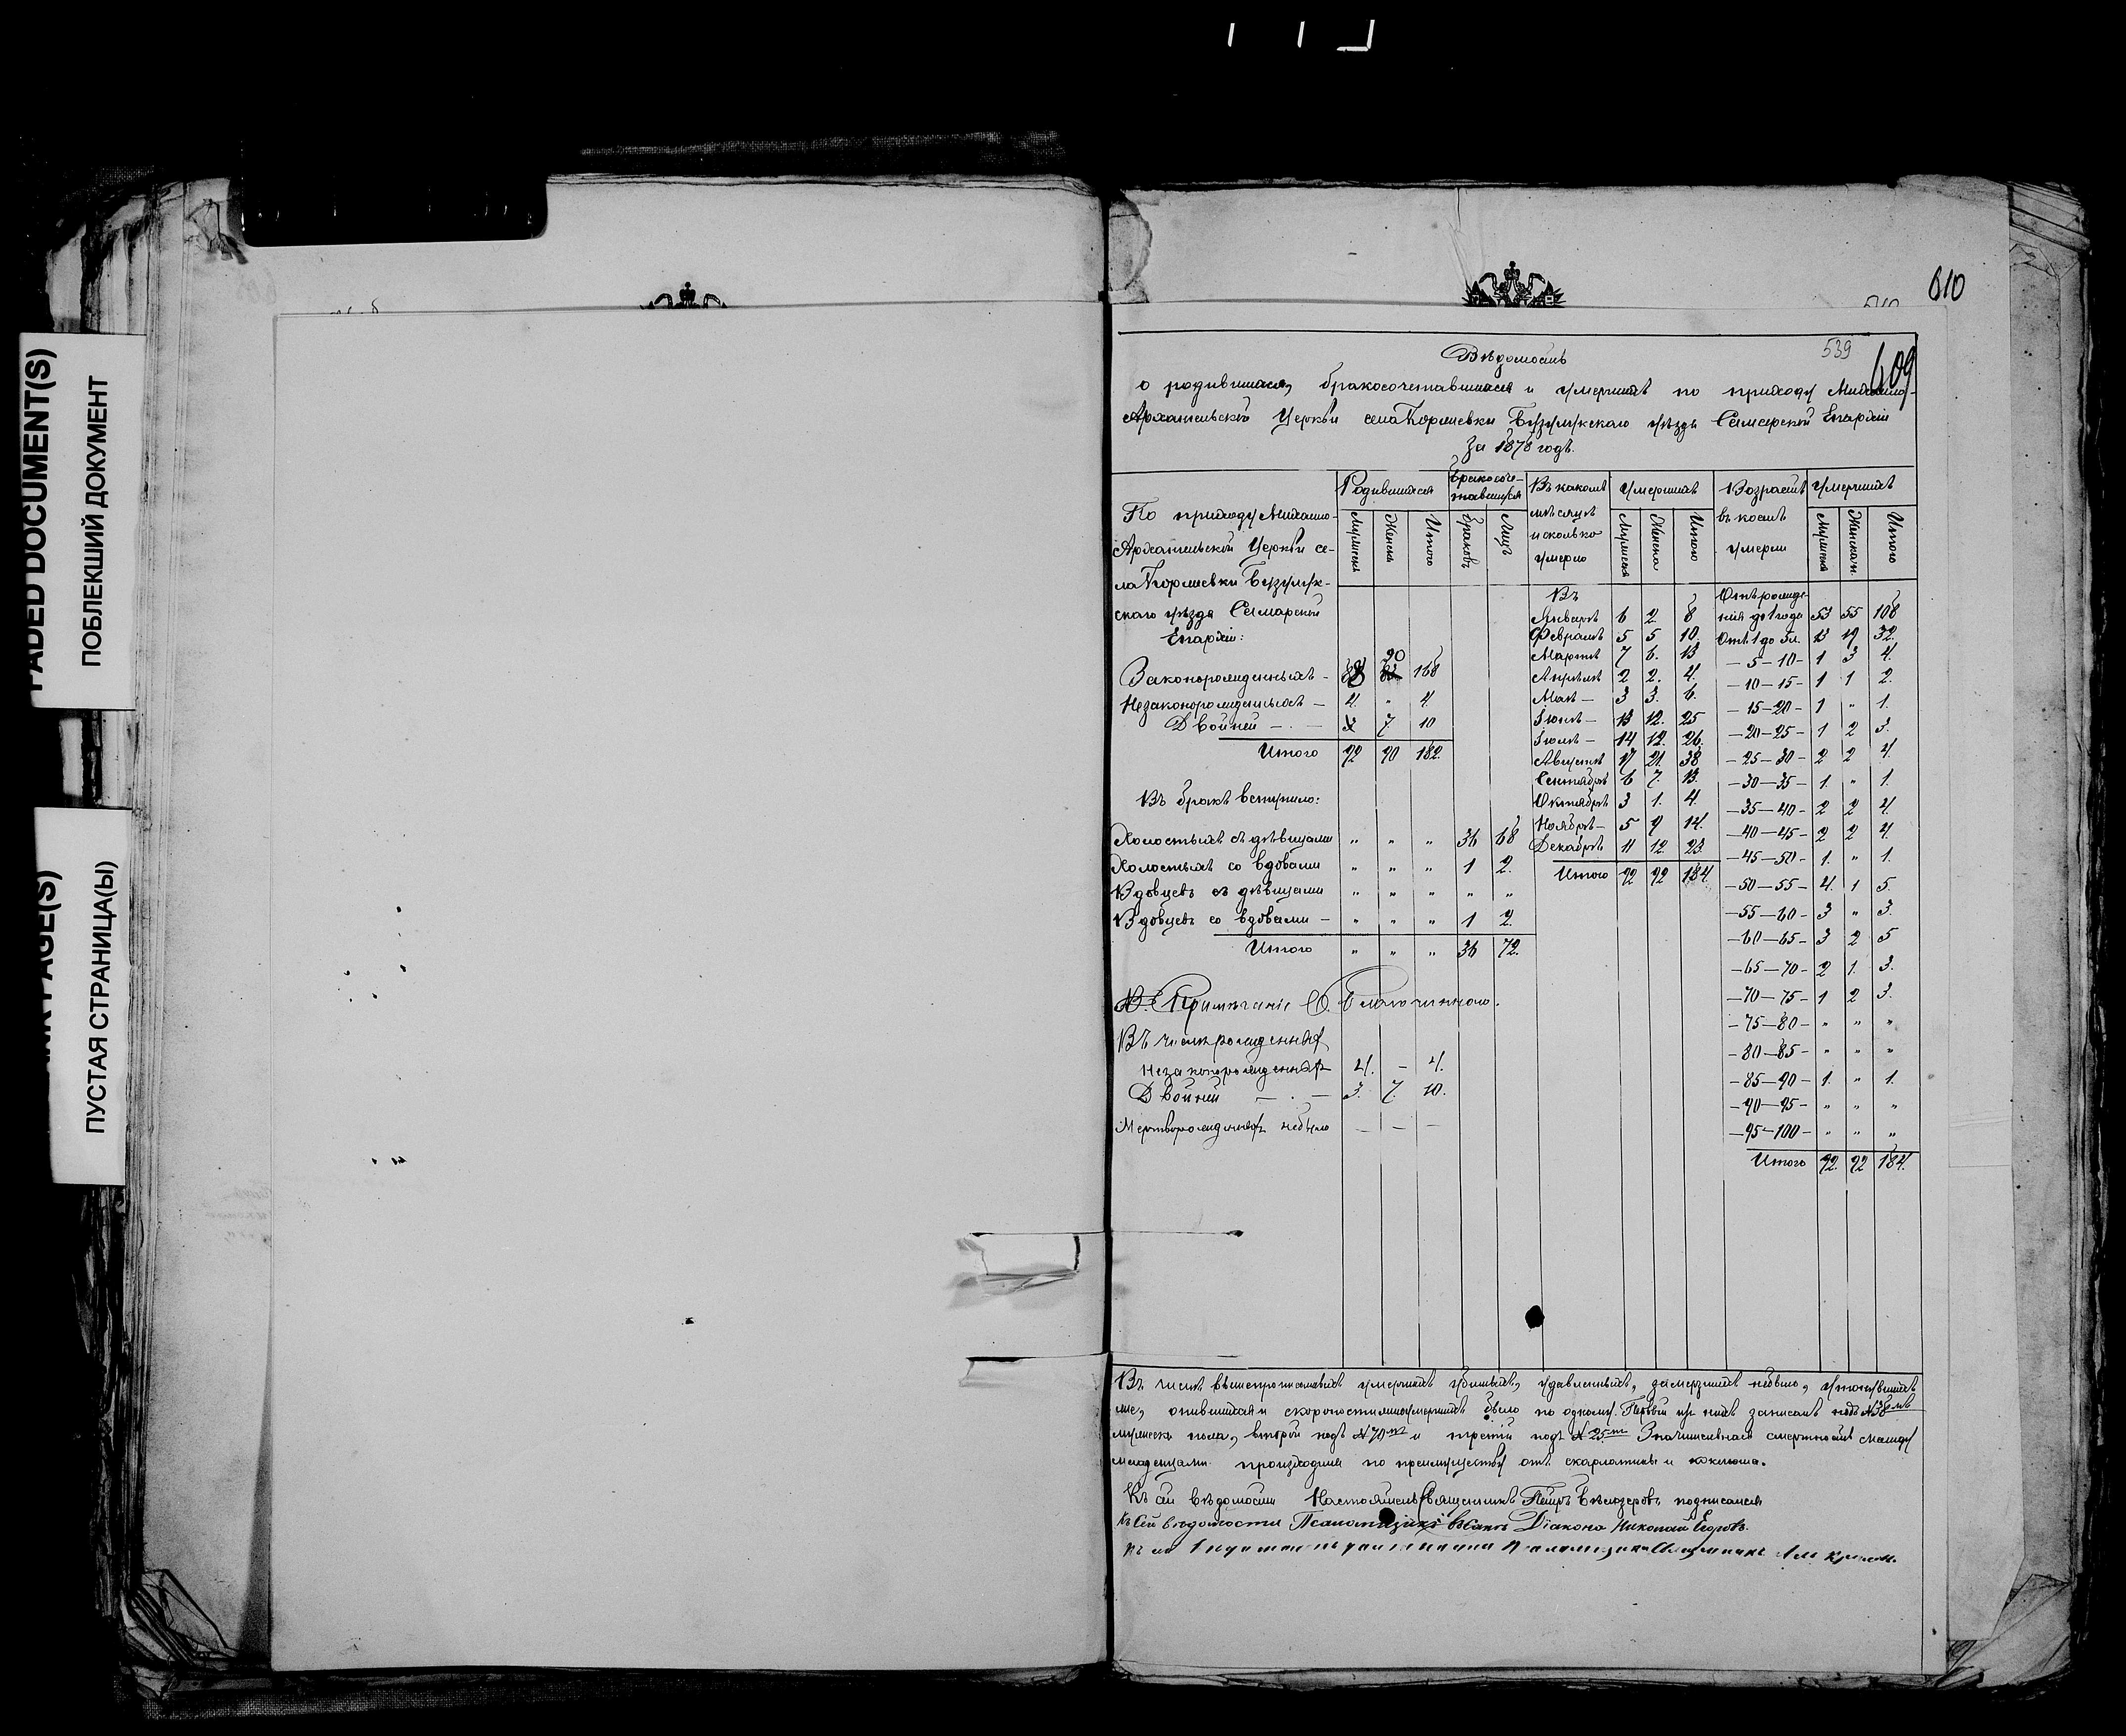 FADED DOCUMENT(S)
ПОБЛЕКШИЙ ДОКУМЕНТ
PAGE(S)
ПУСТАЯ СТРАНИЦА(Ы)
610
539
609
Вѣдомость
о родившихся, бракосочетавшихся и умершихъ по приходу Михаило-
Архангельской Церкви села Бузулукскаго уѣзда Самарской Епархіи
за 1878 годъ.
По приходу Михаило-
Архангельской Церкви се-
ла Бузулук-
скаго уѣзда Самарской
Епархіи:
Родившихся
Бракосоче-
тавшихся
Въ какомъ
мѣсяцѣ
и сколько
умерло
Умершихъ
Возрастъ
въ коемъ
умерли
Умершихъ
Мужеска Женска Итого Браковъ Лицъ Мужеска Женска Итого Мужеска Женскаго Итого
Законорожденныхъ - 90 168
Незаконорожденныхъ — 4 " 4
Двойней — . — 7 10
Итого 92 90 182.
Въ бракъ вступило:
Холостыхъ съ дѣвицами " " " 68
Холостыхъ со вдовами " " " 1 2.
Вдовцевъ съ дѣвицами " " " " "
Вдовцевъ со вдовами - " " " 1 2.
Итого " " " 36 72.
Примѣчаніе О. Благочиннаго.
Въ числѣ рожденныхъ
Незаконорожденныхъ 4. - 4.
Двойней — . — 3. 7. 10.
Мертворожденныхъ небыло — — —
Въ
Январѣ 6 2 8
Февралѣ 5 5 10.
Мартѣ 7 6. 13
Апрѣлѣ 2 2. 4.
Маѣ — 3 3. 6.
Іюнѣ — 13 12. 25
Іюлѣ — 14 12. 26.
Августѣ 17 21. 38
Сентябрѣ 6 7. 13.
Октябрѣ 3 1. 4.
Ноябрѣ — 5 9 14.
Декабрѣ 11 12. 23.
Итого 92 92 184.
Отъ рожде-
нія до 1 года 53 55 108
Отъ 1 до 5 л. 13 19 32.
— 5 — 10 — 1 3 4.
— 10 — 15 — 1 1 2.
— 15 — 20 — 1 " 1.
— 20 — 25 — 1 2 3.
— 25 — 30 — 2 2 4.
— 30 — 35 — 1. " 1.
— 35 — 40 — 2 2 4.
— 40 — 45 — 2 2 4.
— 45 — 50 — 1. " 1.
— 50 — 55 — 4. 1 5.
— 55 — 60 — 3 " 3.
— 60 — 65 — 3 2 5
— 65 — 70 — 2 1. 3.
— 70 — 75 — 1 2 3.
— 75 — 80 — " " "
— 80 — 85 — " " "
— 85 — 90 — 1. " 1.
— 90 — 95 — " " "
— 95 — 100 — " " "
Итого 92. 92 184.
Въ числѣ вышепрописанныхъ умершихъ убитыхъ, удавленныхъ, замерзшихъ небыло, утонувшихъ
опившихся и скоропостижно умершихъ было по одному. Первый изъ нихъ записанъ подъ № 38мъ
мужеска пола, второй подъ № 70мъ и третій подъ № 25мъ Значительная смертность между
младенцами происходила по преимуществу отъ скарлатины и коклюша.
Къ сей вѣдомости Настоятель Священникъ Петръ Бѣлозеровъ подписался
Къ Сей вѣдомости Діаконъ Николай Егоровъ.